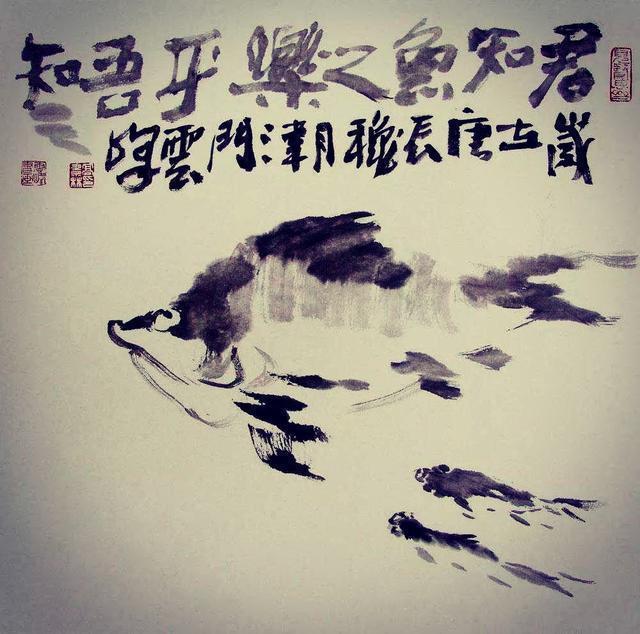 君知魚之樂乎吾知之
歲在庚辰穐月津門雲